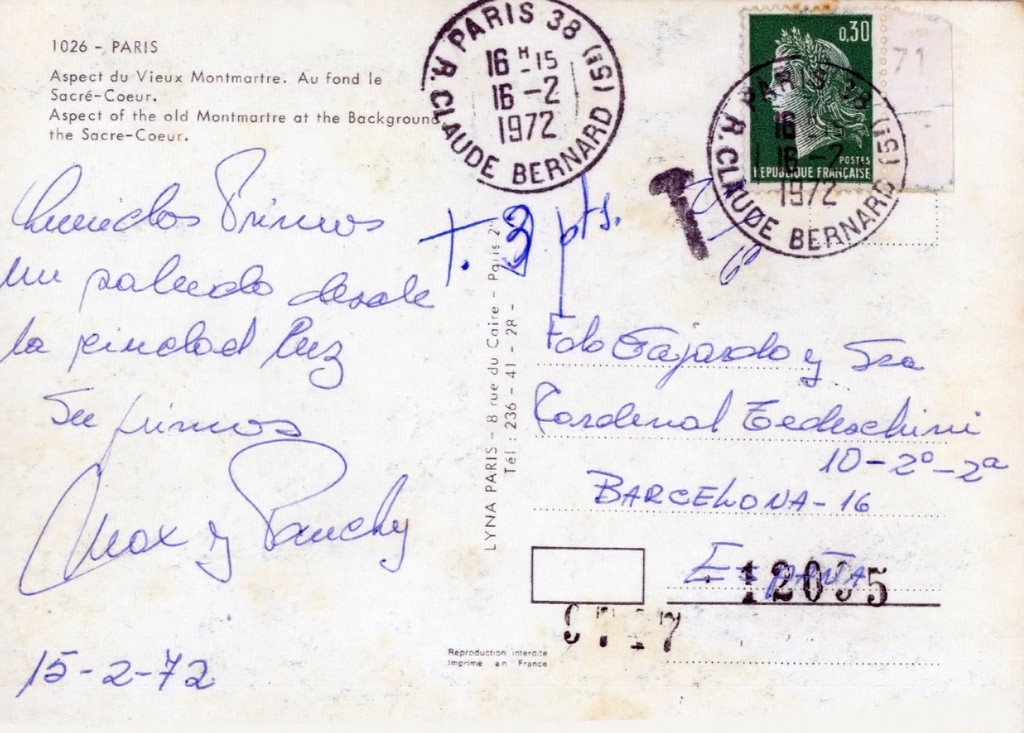 1026 - PARIS
Aspect du Vieux Montmartre. Au fond le
Sacré-Coeur.
Aspect of the old Montmartre at the Background
the Sacre-Coeur.
PARIS 38 (IS)
16 H -15
16 -2
1972
R. CLAUDE BERNARD
0,30
POSTES
REPUBLIQUE FRANÇAISE
71
PARIS 38 (IS)
16 H -15
16 -2
1972
R. CLAUDE BERNARD
T
T. 3 pts.
Queridos Primos
un saludo desde
la ciudad Luz
Su primos
Max y Panchy
15-2-72
LYNA PARIS - 8 rue du Caire - Paris 2
Tél : 236 - 41 - 28 -
Fdo Fajardo y Sra
Cardenal Tedeschini
10-2º-2ª
BARCELONA-16
ESPAÑA
Reproduction interdite
Imprimé en France